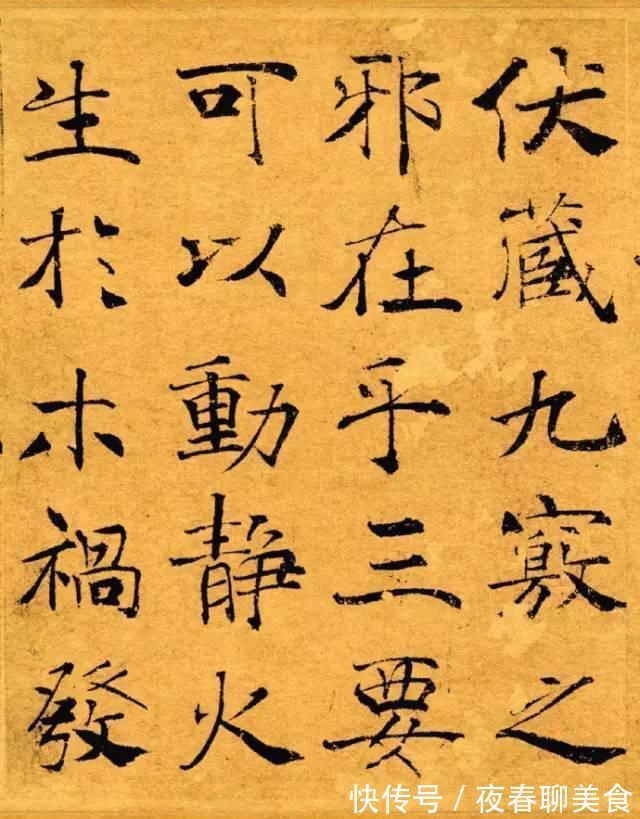 伏藏九竅之
邪在乎三要
可以動靜火
生於木禍發
快传号/夜春聊美食